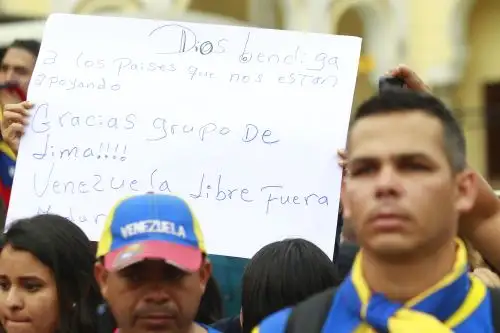 Dios bendiga
a los paises que nos estan
apoyando
Gracias grupo De
Lima!!!!
Venezuela libre Fuera
VENEZUELA